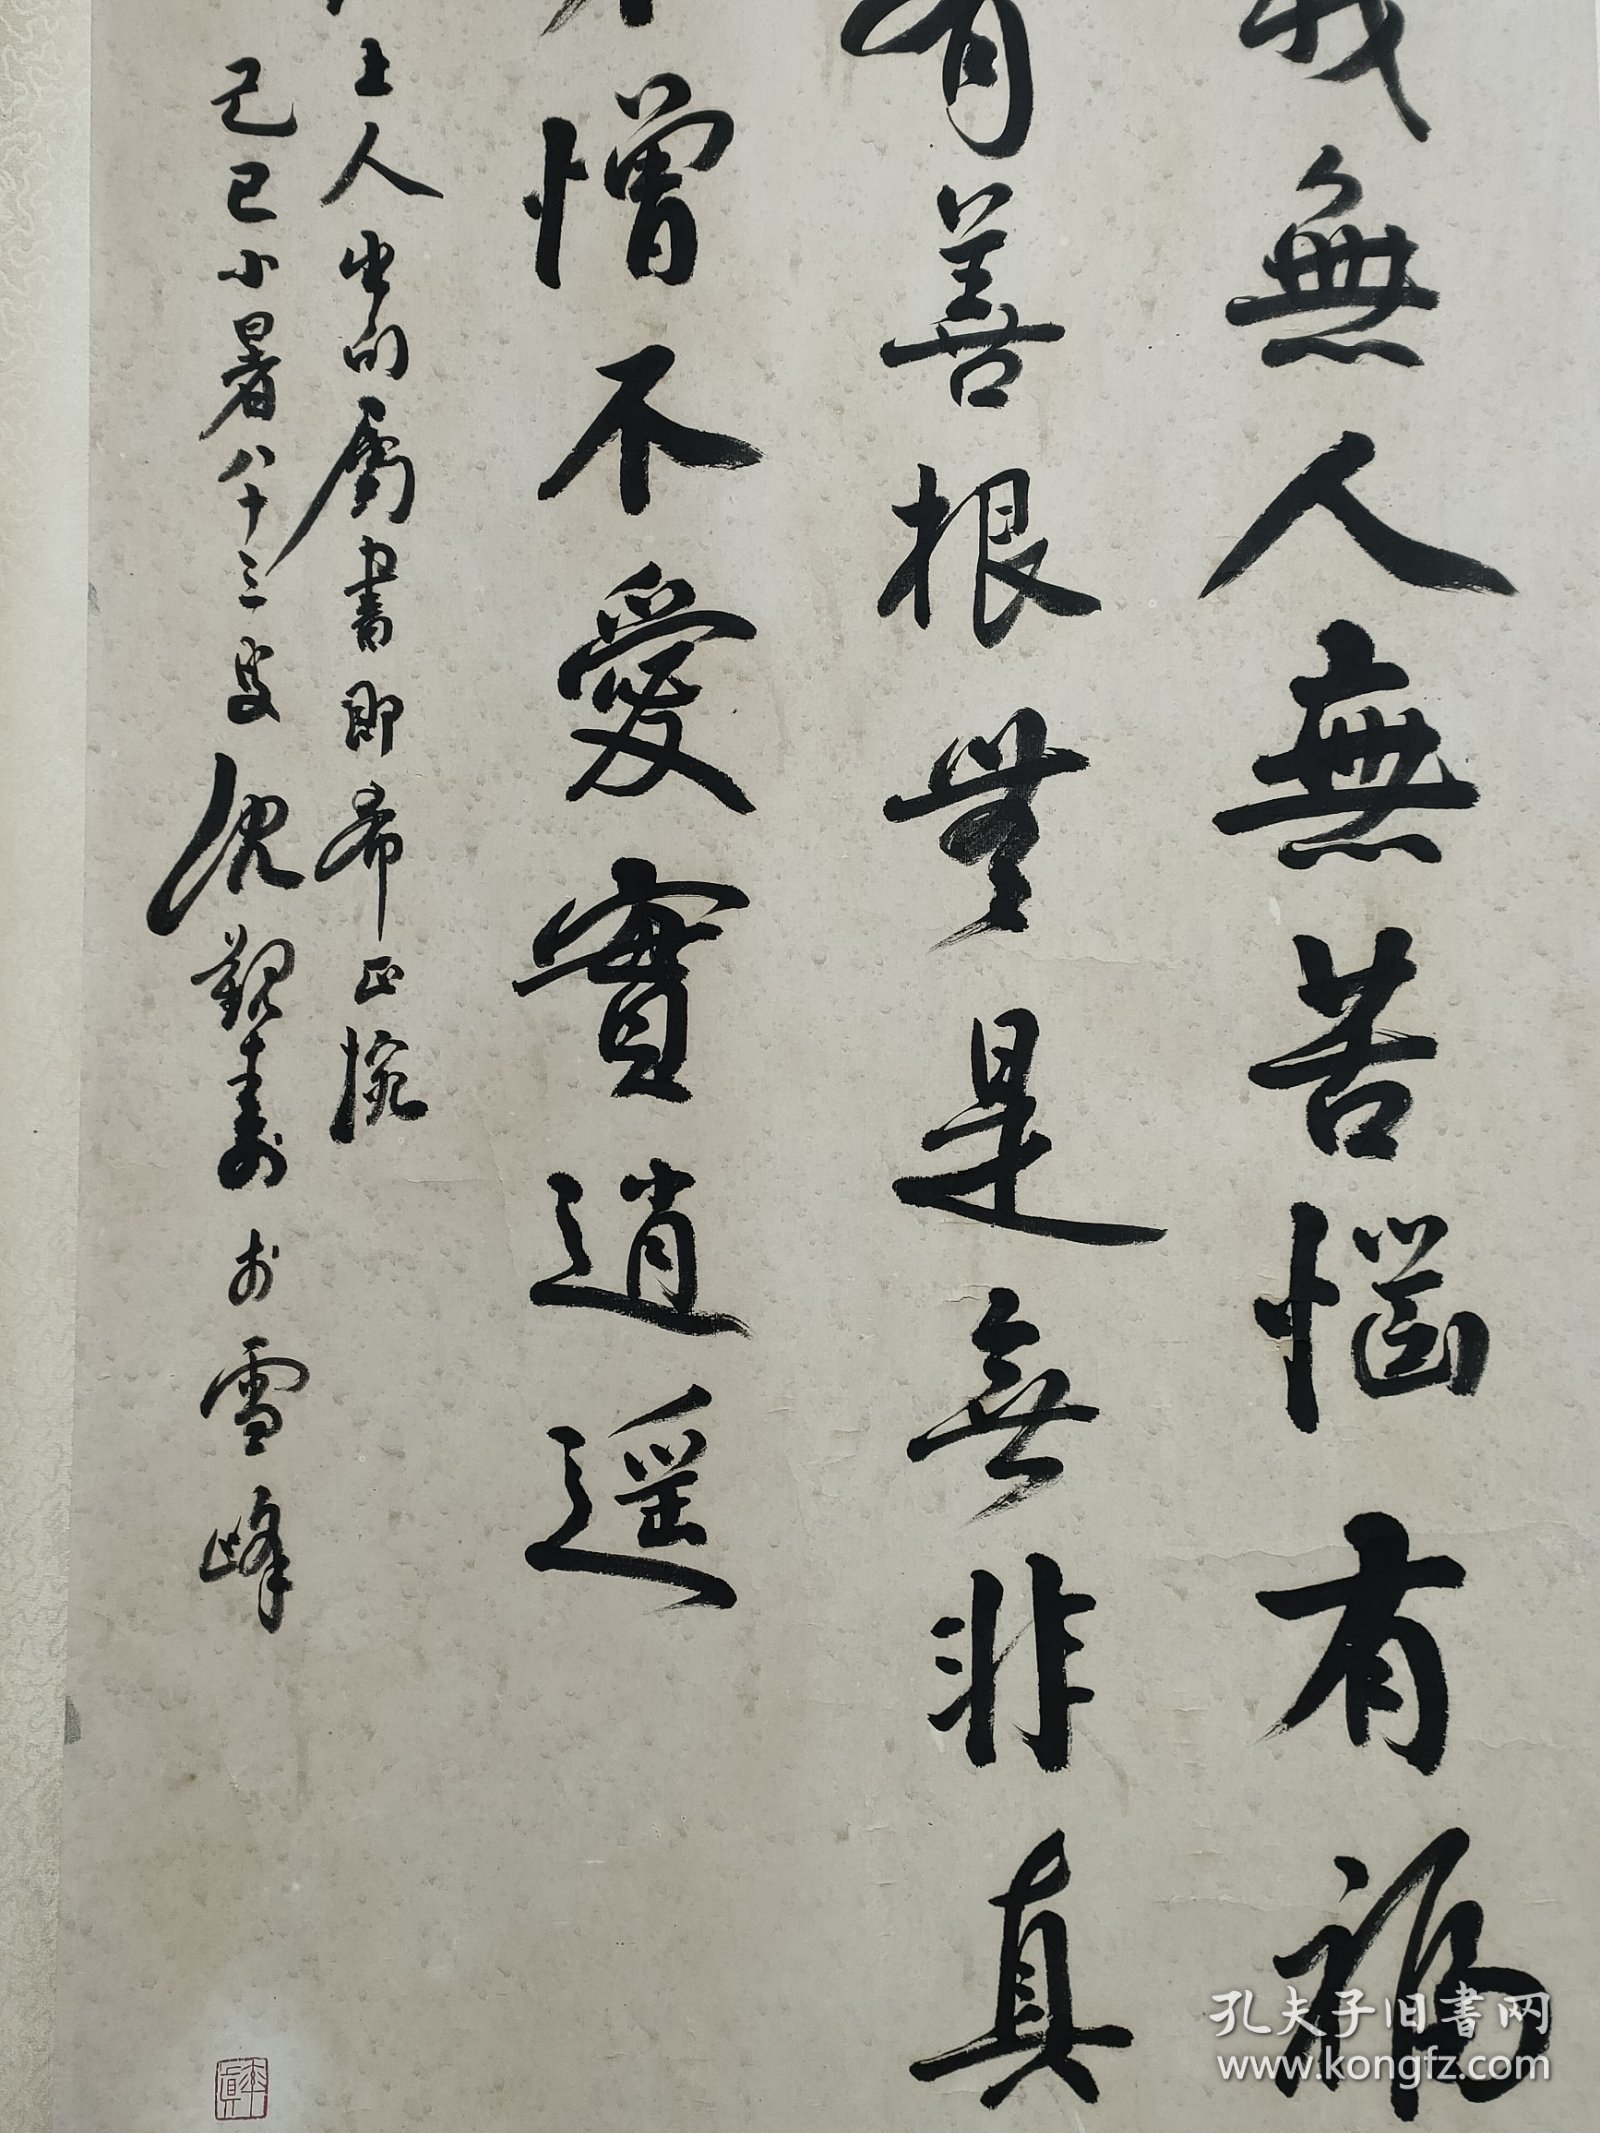 我無人無苦惱有福
有善根無是無非真
不憎不愛實逍遥
上人出句屬書即希正腕
己巳小暑八十三叟沈覲壽於雪峰
孔夫子旧书网
www.kongfz.com